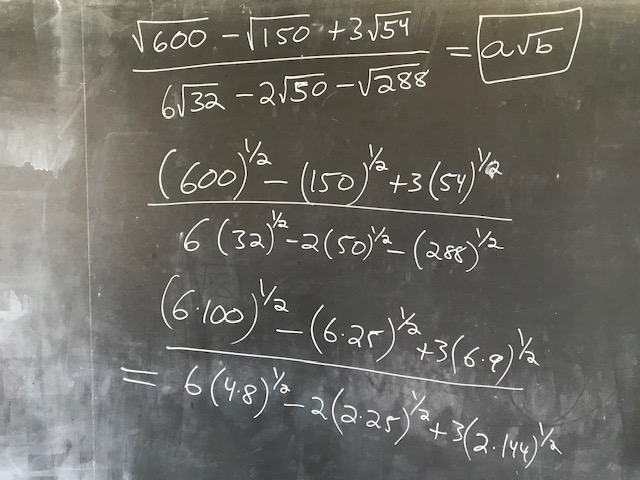 √600 - √150 + 3√54
6√32 - 2√50 - √288
= a√b
(600)^1/2 - (150)^1/2 + 3(54)^1/2
6(32)^1/2 - 2(50)^1/2 - (288)^1/2
(6·100)^1/2 - (6·25)^1/2 + 3(6·9)^1/2
=
6(4·8)^1/2 - 2(2·25)^1/2 + 3(2·144)^1/2